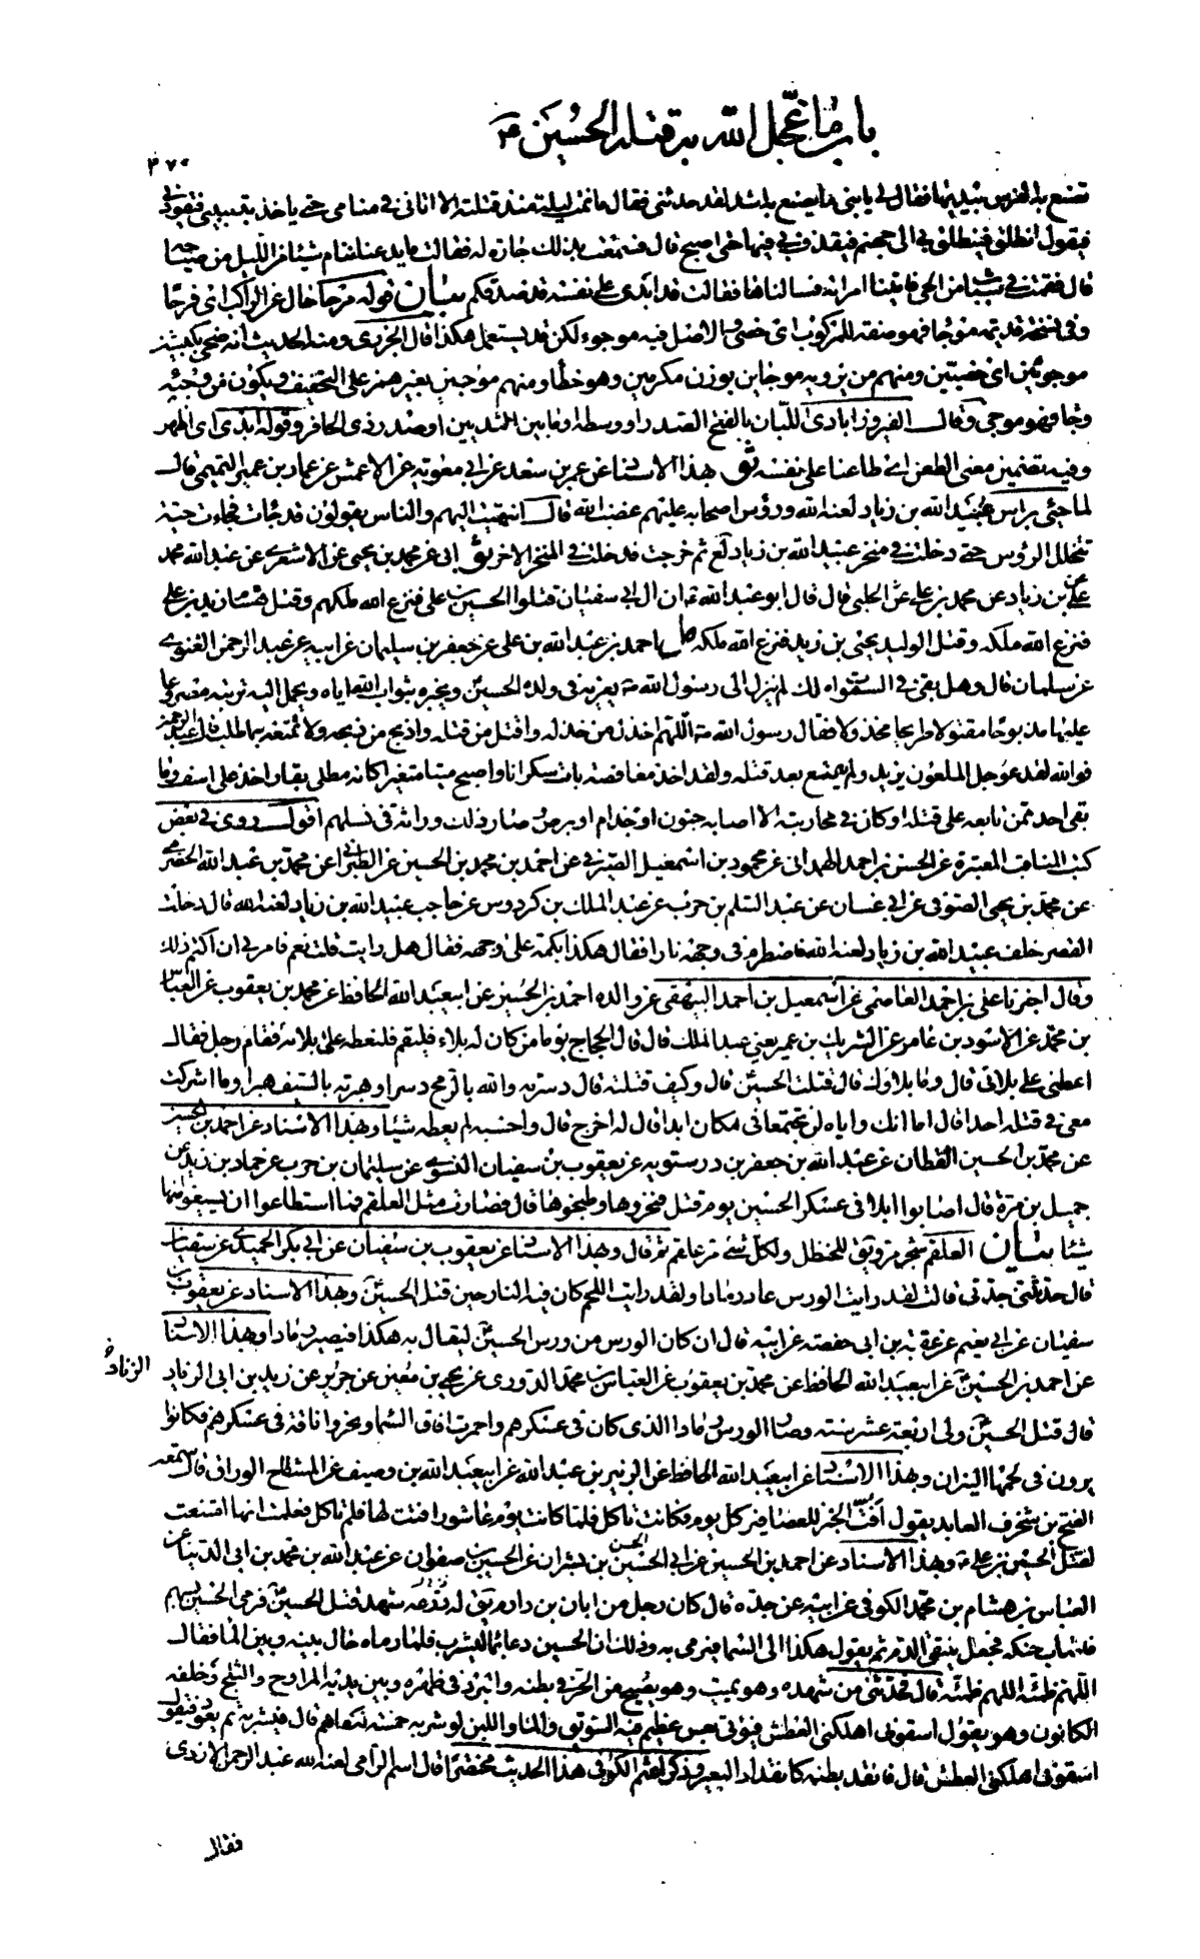 باب ما عجل الله به قتلة الحسين ص
٣٧٠
تصنع بالفرس بلبنها فقال لي يا بني ما يصنع بأشد لقد حدثني فقال ما نمت ليلة منذ قتلته الا اتاني في منامي حتى ياخذ بتلبيبي فيقودني
فيقول انطلق فينطلق بي الى جهنم فيقذف بي فيها حتى اصبح قال فسمعت بذلك جارة له فقالت ما يدعنا ننام شيئا من الليل من صياحه
قال فقمت في شباب من الحي فاتينا امرأته فسألناها فقالت قد ابدى على نفسه قد صدقكم بيان قوله مرحا حال عن الراكب اى فرحا
وفي نسخة قديمة موجا فهو صفة للمركوب اى خصى والاصل فيه موجوء لكن قد يستعمل هكذا قال الجزرى ومنه الحديث انه ضحى بكبشين
موجوئين اى خصيين ومنهم من يرويه موجاين بوزن مكرمين وهو خطأ ومنهم موجيين بغير همز على التخفيف ويكون من وجيته
وجا فهو موجى وقال الفيروزابادى اللبان بالفتح الصدر او وسطه او ما بين الثديين او صدر ذى الحافر وقوله ابدى اى اظهر
وفيه تضمين معنى الطعن اى طاعنا على نفسه ثو بهذا الاسناد عن عمر بن سعد عن ابي معوية عن الاعمش عن عمار بن عمير التيمي قال
لما جئ براس عبيد الله بن زياد لعنه الله ورؤس اصحابه عليهم غضب الله قال انتهيت اليهم والناس يقولون قد جاءت فجاءت حية
تتخلل الرؤس حتى دخلت في منخر عبيد الله بن زياد لع ثم خرجت فدخلت في المنخر الاخر ثو ابى عن محمد بن يحيى عن الاشعرى عن عبد الله محمد
عن على بن زياد عن محمد بن على عن الحلبي قال قال ابو عبد الله ع ان ال ابي سفيان قتلوا الحسين بن على فنزع الله ملكهم وقتل هشام زيد بن على
فنزع الله ملكه وقتل الوليد يحيى بن زيد فنزع الله ملكه احمد بن عبد الله بن على عن جعفر بن سليمان عن ابيه عن عبد الرحمن الغنوى
عن سلمان قال وهل بقى في السموات ملك لم ينزل الى رسول الله ص يعزيه في ولده الحسين ويخبره بثواب الله اياه ويحمل اليه تربته مصروعا
عليها مذبوحا مقتولا طريحا مخذولا فقال رسول الله ص اللهم اخذل من خذله واقتل من قتله واذبح من ذبحه ولا تمتعه بما طلب قال عبد الرحمن
فوالله لقد عوجل الملعون يزيد ولم يتمتع بعد قتله ولقد اخذ مغافصة بات سكرانا واصبح ميتا متغيرا كانه مطلى بقار اخذ على اسف وما
بقى احد ممن تابعه على قتله او كان في محاربته الا اصابه جنون او جذام او برص وصار ذلك وراثة في نسلهم اقول روى في بعض
كتب المناقب المعتبرة عن الحسن بن احمد الهمداني عن محمود بن اسمعيل الصيرفي عن احمد بن محمد بن الحسين عن الطبراني عن محمد بن عبد الله الحضرمي
عن محمد بن يحيى الصوفي عن ابي غسان عن عبد السلم بن حرب عن عبد الملك بن كردوس عن حاجب عبيد الله بن زياد لعنه الله قال دخلت
القصر خلف عبيد الله بن زياد لعنه الله فاضطرم في وجهه نارا فقال هكذا بكمه على وجهه فقال هل رايت قلت نعم فامرني ان اكتم ذلك
وقال اخبرنا على بن احمد العاصمي عن اسمعيل بن احمد البيهقي عن والده احمد بن الحسين عن ابي عبد الله الحافظ عن محمد بن يعقوب عن العباس
بن محمد عن الاسود بن عامر عن الشريك بن عمير يعني عبد الملك قال قال الحجاج يوما من كان له بلاء فليقم فلنعطه على بلائه فقام رجل فقال
اعطني على بلائي قال وما بلاؤك قال قتلت الحسين قال وكيف قتلته قال دسرته والله بالرمح دسرا وهبرته بالسيف هبرا وما اشركت
معي في قتله احدا قال اما انك واياه لن تجتمعا في مكان ابدا قال له اخرج قال واحسبه لم يعطه شيئا وبهذا الاسناد عن احمد بن الحسين
عن محمد بن الحسين القطان عن عبد الله بن جعفر بن درستويه عن يعقوب بن سفيان النسوى عن سليمان بن حرب عن حماد بن زيد عن
جميل بن مرة قال اصابوا ابلا في عسكر الحسين يوم قتل فنحروها وطبخوها قال فصارت مثل العلقم فما استطاعوا ان يسيغوا منها
شيئا بيان العلقم شجر مر ويق للحنظل ولكل شئ مر علقم ثم قال وبهذا الاسناد عن يعقوب بن سفيان عن ابي بكر الحميدى عن سفيان
قال حدثتني جدتي قالت لقد رايت الورس عاد رمادا ولقد رايت اللحم كان فيه النار حين قتل الحسين وبهذا الاسناد عن يعقوب بن
سفيان عن ابي نعيم عن عقبة بن ابي حفصة عن ابيه قال ان كان الورس من ورس الحسين ليقال به هكذا فيصير رمادا وبهذا الاسناد
عن احمد بن الحسين عن ابي عبد الله الحافظ عن محمد بن يعقوب عن العباس بن محمد الدورى عن يحيى بن معين عن جرير عن زيد بن ابي الزياد
الزناد
قال قتل الحسين ولى اربعة عشر سنة وصار الورس رمادا الذي كان في عسكرهم واحمرت افاق السماء ونحروا ناقة في عسكرهم فكانوا
يرون في لحمها النيران وبهذا الاسناد عن ابي عبد الله الحافظ عن الزبير بن عبد الله عن ابي عبد الله بن وصيف عن المشطاح الوراق قال سمعت
الفتح بن شخرف العابد يقول افت الخبز للعصافير كل يوم فكانت تاكل فلما كانت يوم عاشورا فتت لها فلم تاكل فعلمت انها امتنعت
لقتل الحسين بن على ع وبهذا الاسناد عن احمد بن الحسين عن ابي الحسين الحسن بن بشران عن الحسين بن صفوان عن عبد الله بن محمد بن ابي الدنيا عن
العباس بن هشام بن محمد الكوفي عن ابيه عن جده قال كان رجل من ابان بن دارم يق له زرعة شهد قتل الحسين فرمى الحسين بسهم
فاصاب حنكه فجعل يتلقى الدم ثم يقول هكذا الى السماء فيرمى به وذلك ان الحسين دعا بماء ليشرب فلما رماه حال بينه وبين الماء فقال
اللهم ظمئه اللهم ظمئه قال فحدثني من شهده وهو يموت وهو يصيح من الحر في بطنه والبرد في ظهره وبين يديه المراوح والثلج وخلفه
الكانون وهو يقول اسقوني اهلكني العطش فيؤتى بعس عظيم فيه السويق والماء واللبن لو شربه خمسة لكفاهم قال فيشربه ثم يعود فيقول
اسقوني اهلكني العطش قال فانقد بطنه كانقداد البعير وذكر اعثم الكوفي هذا الحديث مختصرا قال اسم الرامي لعنه الله عبد الرحمن الازدى
فقال